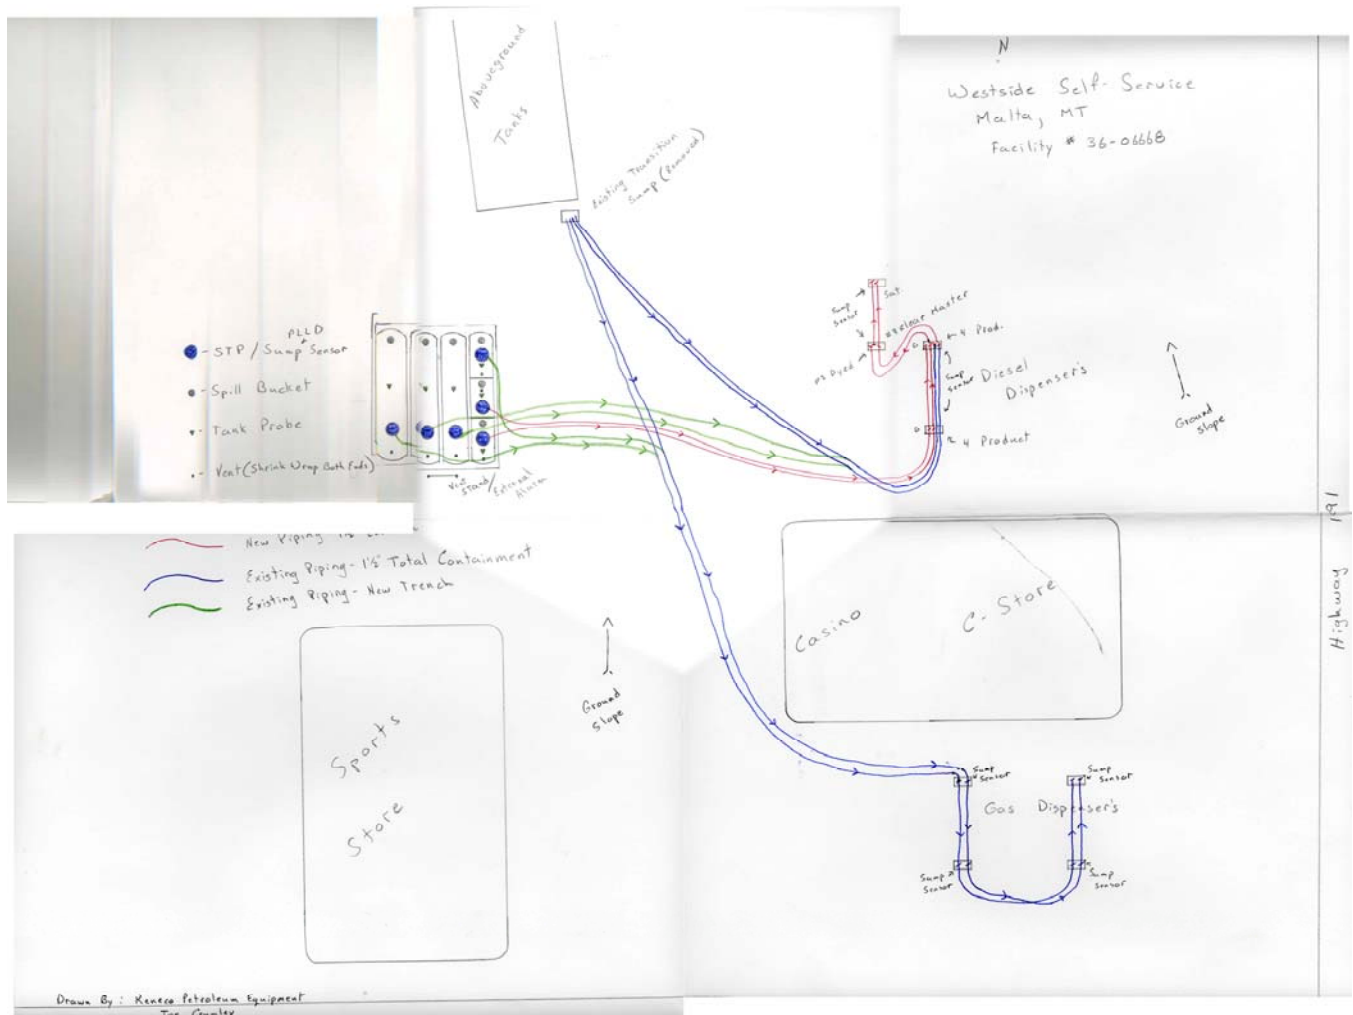 N
Westside Self-Service
Malta, MT
Facility # 36-06668
Aboveground
Tanks
Existing Transition
Sump (Removed)
PLLD
- STP / Sump Sensor
- Spill Bucket
- Tank Probe
- Vent (Shrink Wrap Both Ends)
Vent
Stand / External
Alarm
Sump
Sensor
Sat
Clear Master
Dyed
4 Prod.
Sump
Sensor
Diesel
Dispenser's
4 Product
Ground
Slope
New Piping - 1½"
Existing Piping - 1½" Total Containment
Existing Piping - New Trench
Casino
C-Store
Highway 191
Ground
Slope
Sports
Store
Sump
Sensor
Sump
Sensor
Gas Dispenser's
Sump
Sensor
Sump
Sensor
Drawn By: Keneco Petroleum Equipment